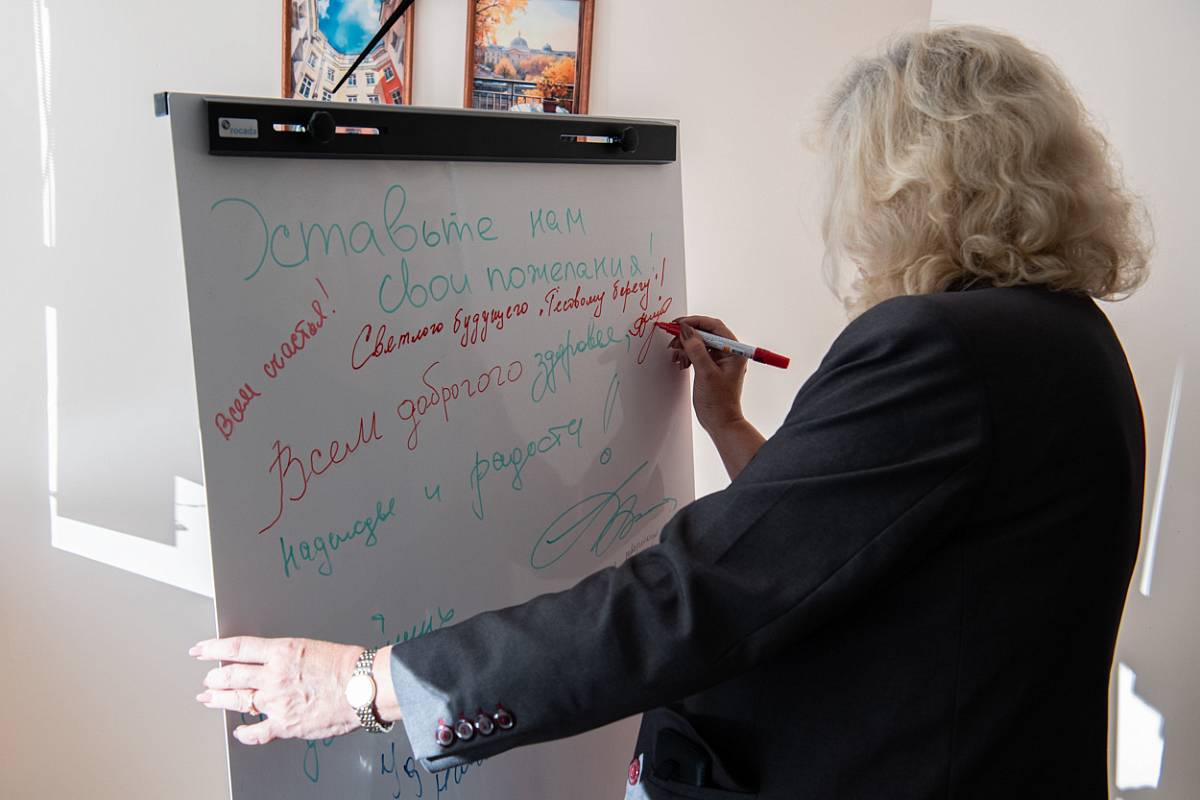 rocada
Оставьте нам
свои пожелания!
Всем счастья!
Светлого будущего "Тёсовому берегу"!
Всем доброго здоровья,
надежды и радости!